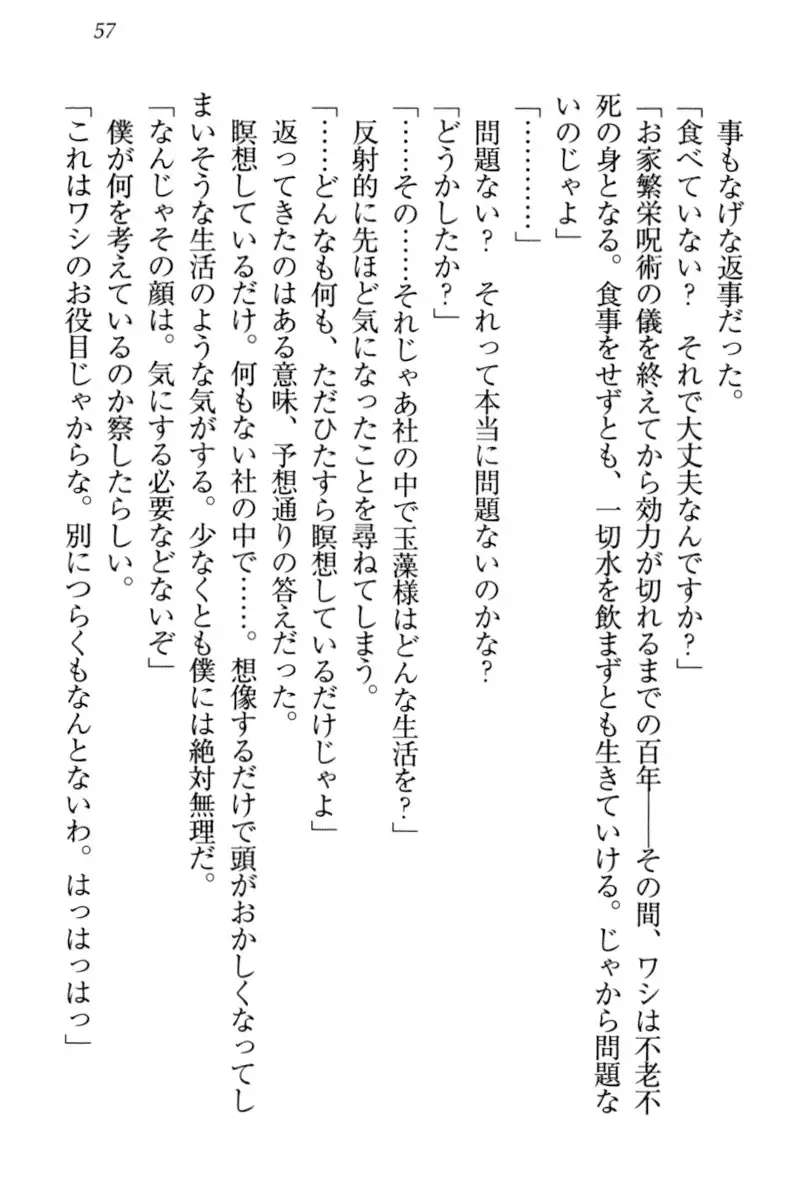 57
事もなげな返事だった。
「食べていない？　それで大丈夫なんですか？」
「お家繁栄呪術の儀を終えてから効力が切れるまでの百年――その間、ワシは不老不
死の身となる。食事をせずとも、一切水を飲まずとも生きていける。じゃから問題な
いのじゃよ」
「…………」
問題ない？　それって本当に問題ないのかな？
「どうかしたか？」
「……その……それじゃあ社の中で玉藻様はどんな生活を？」
反射的に先ほど気になったことを尋ねてしまう。
「……どんなも何も、ただひたすら瞑想しているだけじゃよ」
返ってきたのはある意味、予想通りの答えだった。
瞑想しているだけ。何もない社の中で……。想像するだけで頭がおかしくなってし
まいそうな生活のような気がする。少なくとも僕には絶対無理だ。
「なんじゃその顔は。気にする必要などないぞ」
僕が何を考えているのか察したらしい。
「これはワシのお役目じゃからな。別につらくもなんとないわ。はっはっはっ」